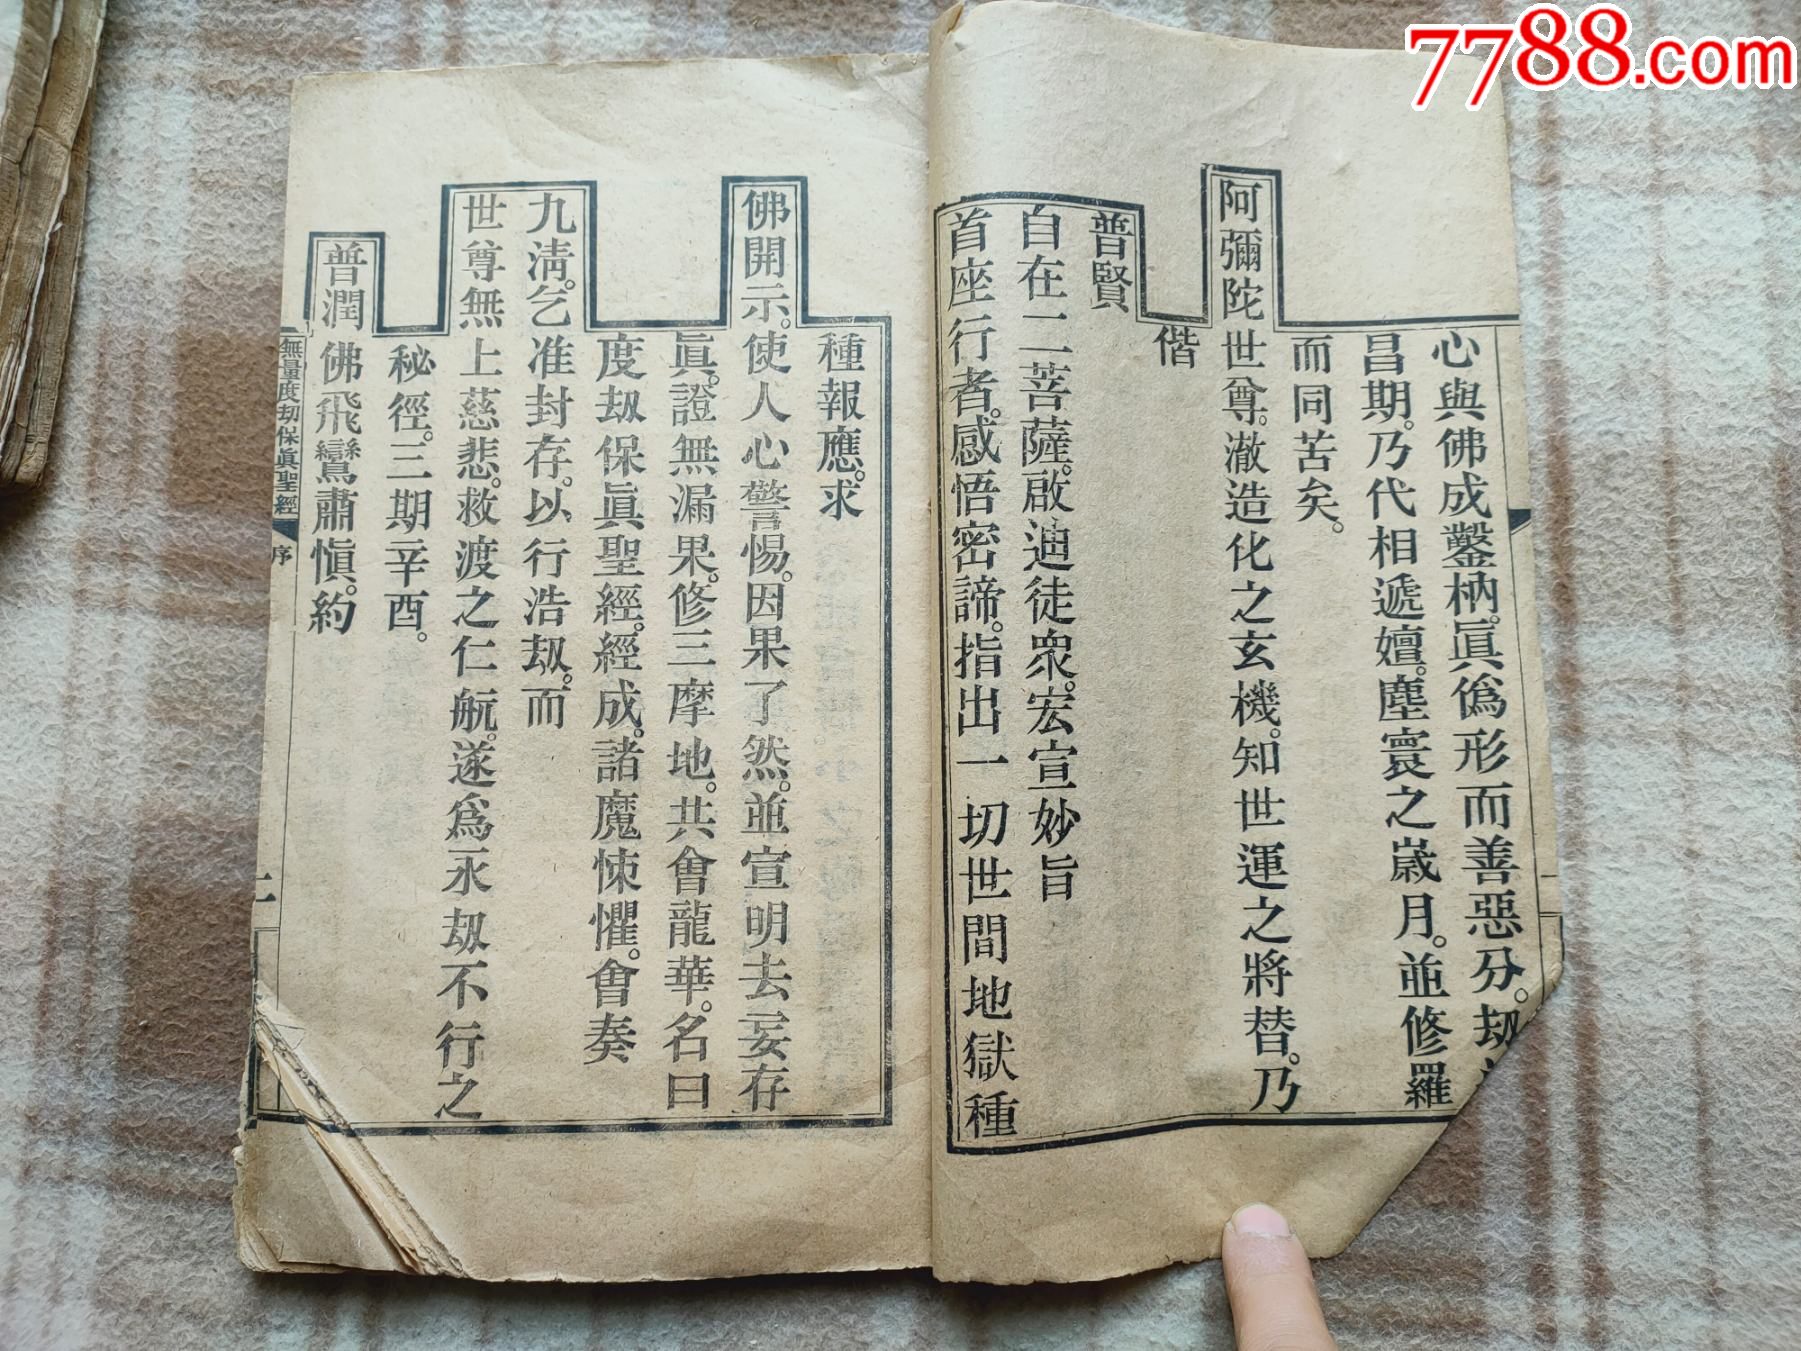 7788.com
心與佛成鑿枘。眞僞形而善惡分。劫
昌期。乃代相遞嬗。塵寰之歲月。並修羅
而同苦矣。
阿彌陀世尊。澈造化之玄機。知世運之將替。乃
偕
普賢
自在二菩薩。啟迪徒衆。宏宣妙旨
首座行者。感悟密諦。指出一切世間地獄種
種報應。求
佛開示。使人心警惕。因果了然。並宣明去妄存
眞。證無漏果。修三摩地。共會龍華。名曰
度劫保眞聖經。經成。諸魔悚懼。會奏
九淸。乞准封存。以行浩劫。而
世尊無上慈悲。救渡之仁航。遂爲永劫不行之
秘徑。三期辛酉。
普潤佛飛鸞肅愼。約
無量度劫保眞聖經 序 二